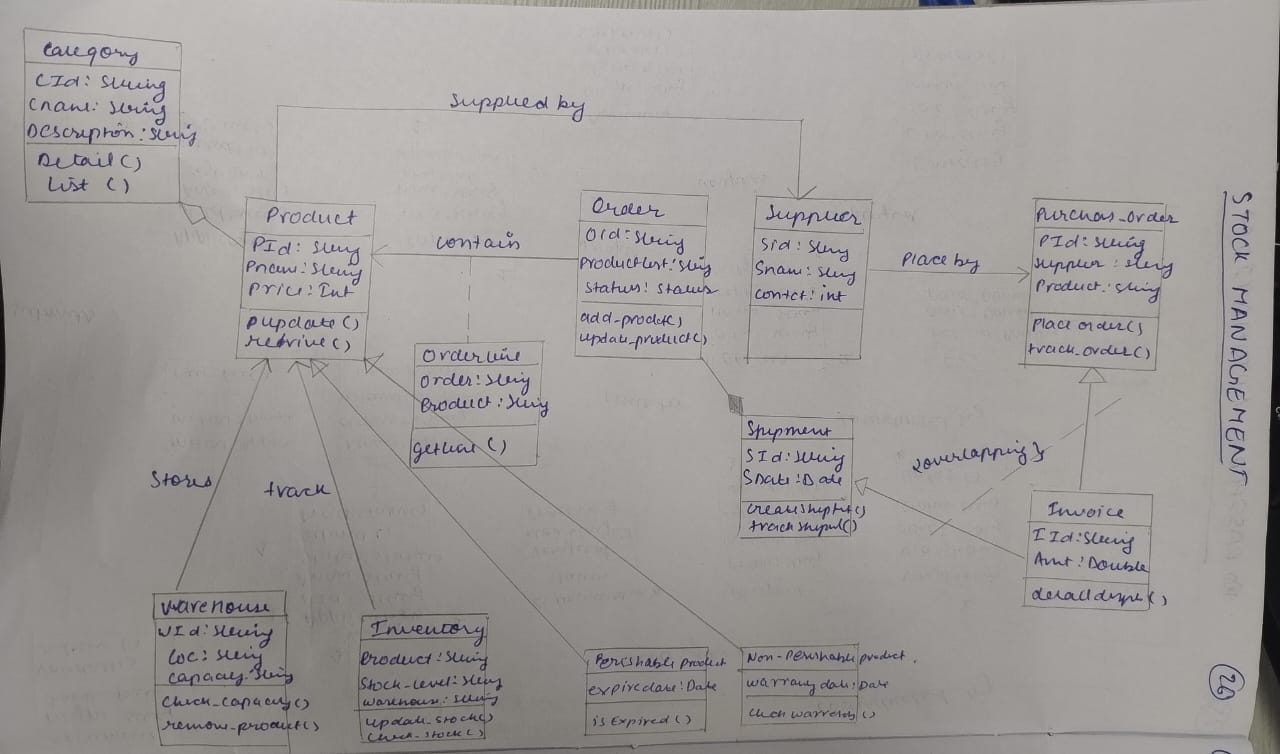 STOCK MANAGEMENT
Category
CId: String
Cname: String
Description: String
Detail()
List ()
Supplied by
Product
PId: String
Pname: String
Price: Int
Pupdate()
retrive()
contain
Order
OId: String
Productlist: String
Status: Status
add_prodct()
update_product()
Supplier
Sid: String
Snam: String
contct: int
Place by
Purchas_order
PId: String
Supplier: String
Product: String
Place order()
track_order()
Orderline
Order: String
Product: String
Shipment
SId: String
SDate: Date
{overlapping}
Invoice
IId: String
Amt: Double
Stores
track
Warehouse
WId: String
Loc: String
capacity: String
Check_capacity()
remove_product()
Inventory
Product: String
Stock_level: String
warehouse: String
update_stock()
Check_stock()
Perishable product
expiredate: Date
isExpired()
Non-Perishable product.
warranty date: Date
check warranty()
26